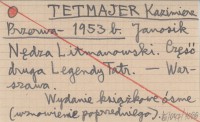 TETMAJER Kazimierz
Przerwa - 1953 b. Janosik
Nędza Litmanowski. Część
druga Legendy Tatr. — War-
szawa.
Wydanie książkowe ósme
(wznowienie poprzedniego).